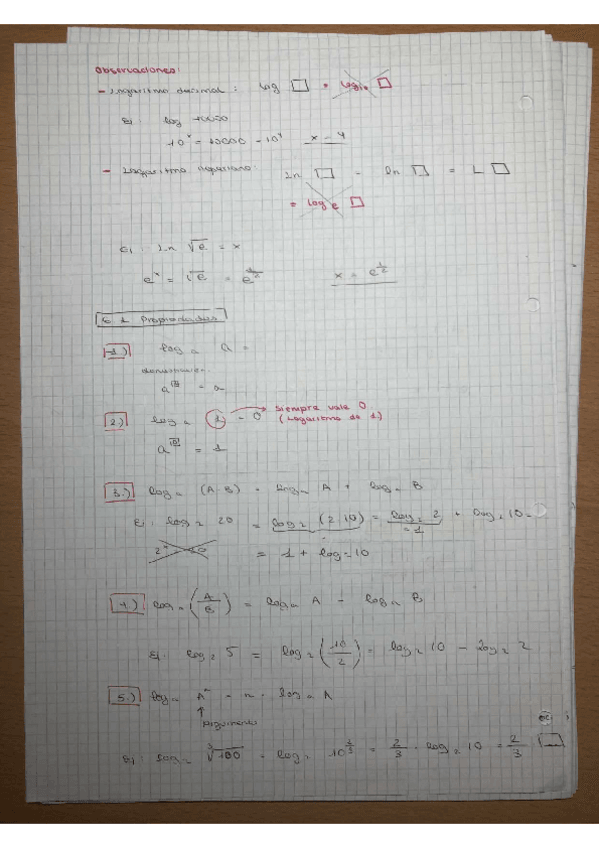 Observaciones:
- Logaritmo decimal: log □ = log₁₀ □
Ej: log 10000
10ˣ = 10000 = 10⁴ x = 4
- Logaritmo neperiano: Ln □ = ln □ = L □
= log e □
Ej: Ln √e = x
eˣ = √e = e^½ x = e^½
6.1 Propiedades
1.) logₐ a =
demostración:
a^□ = a
2.) logₐ 1 = 0 → siempre vale 0
(Logaritmo de 1)
a^□ = 1
3.) logₐ (A·B) = logₐ A + logₐ B
Ej: log₂ 20 = log₂ (2·10) = log₂ 2 + log₂ 10 =
= 1
= 1 + log₂ 10
4.) logₐ (A/B) = logₐ A - logₐ B
Ej: log₂ 5 = log₂ (10/2) = log₂ 10 - log₂ 2
5.) logₐ Aⁿ = n · logₐ A
↑
Argumento
Ej: log₂ ∛100 = log₂ 10^⅔ = 2/3 · log₂ 10 = 2/3 □